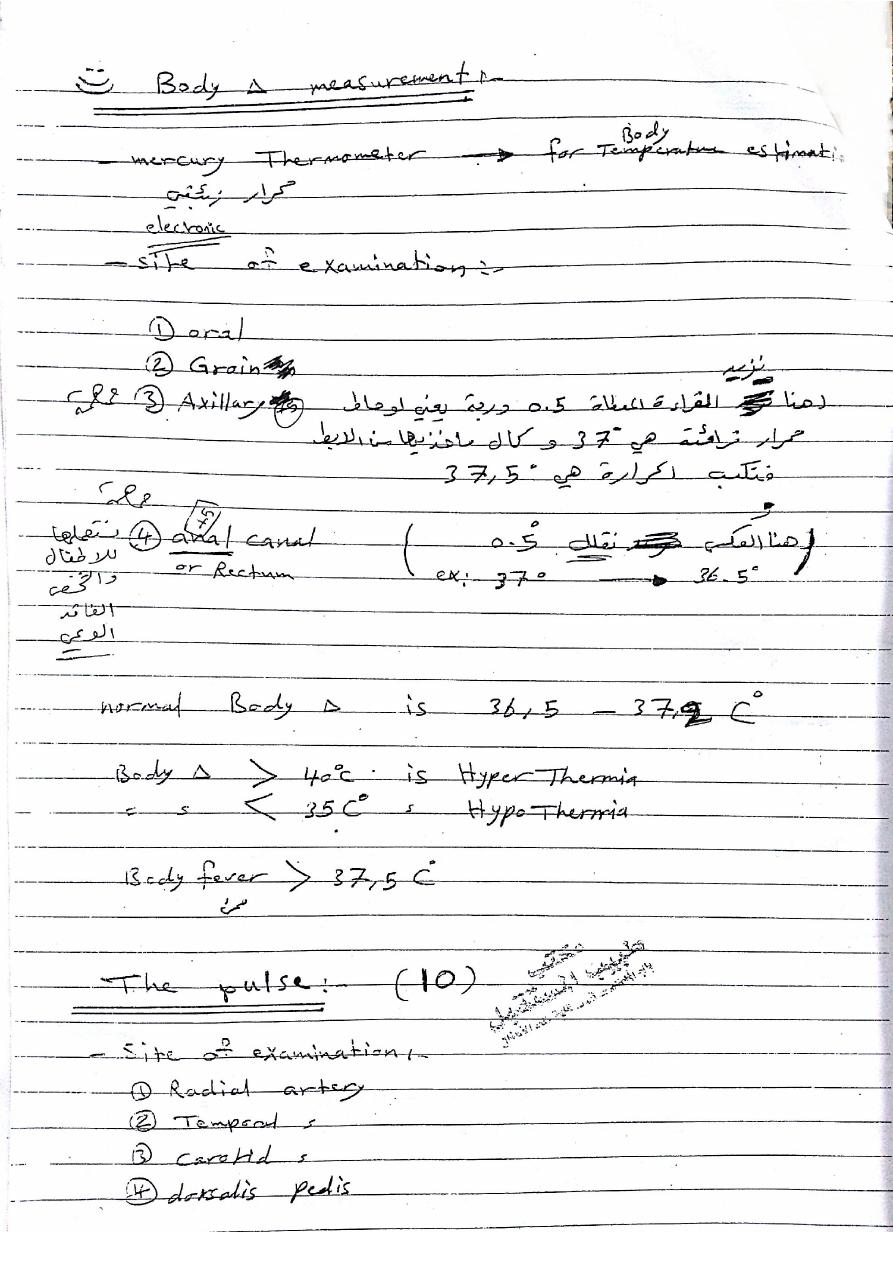 Body Δ measurement :-
- mercury Thermometer → for Body Temperature estimati
محرار زئبقي
electronic
- site of examination :-
① oral
② Groin
③ Axillary مهمة (هنا نزيد القراءة المعطاة 0.5 درجة يعني لو حاط
محرار قرائته هي 37° و كال ماخذيها من الابط
فتكتب الحرارة هي 37,5°
④ anal canal مهمة (و هنا العكس نقلل 0.5°)
or Rectum ex: 37° → 36.5°
نستعملها
للاطفال
والشخص
الفاقد
الوعي
normal Body Δ is 36,5 - 37,2 C°
Body Δ > 40°c is HyperThermia
= s < 35 C° s HypoThermia
Body fever > 37,5 C°
The pulse :- (10)
مكتب
طبيب المستقبل
- Site of examination :-
① Radial artery
② Temporal s
③ carotid s
④ dorsalis pedis